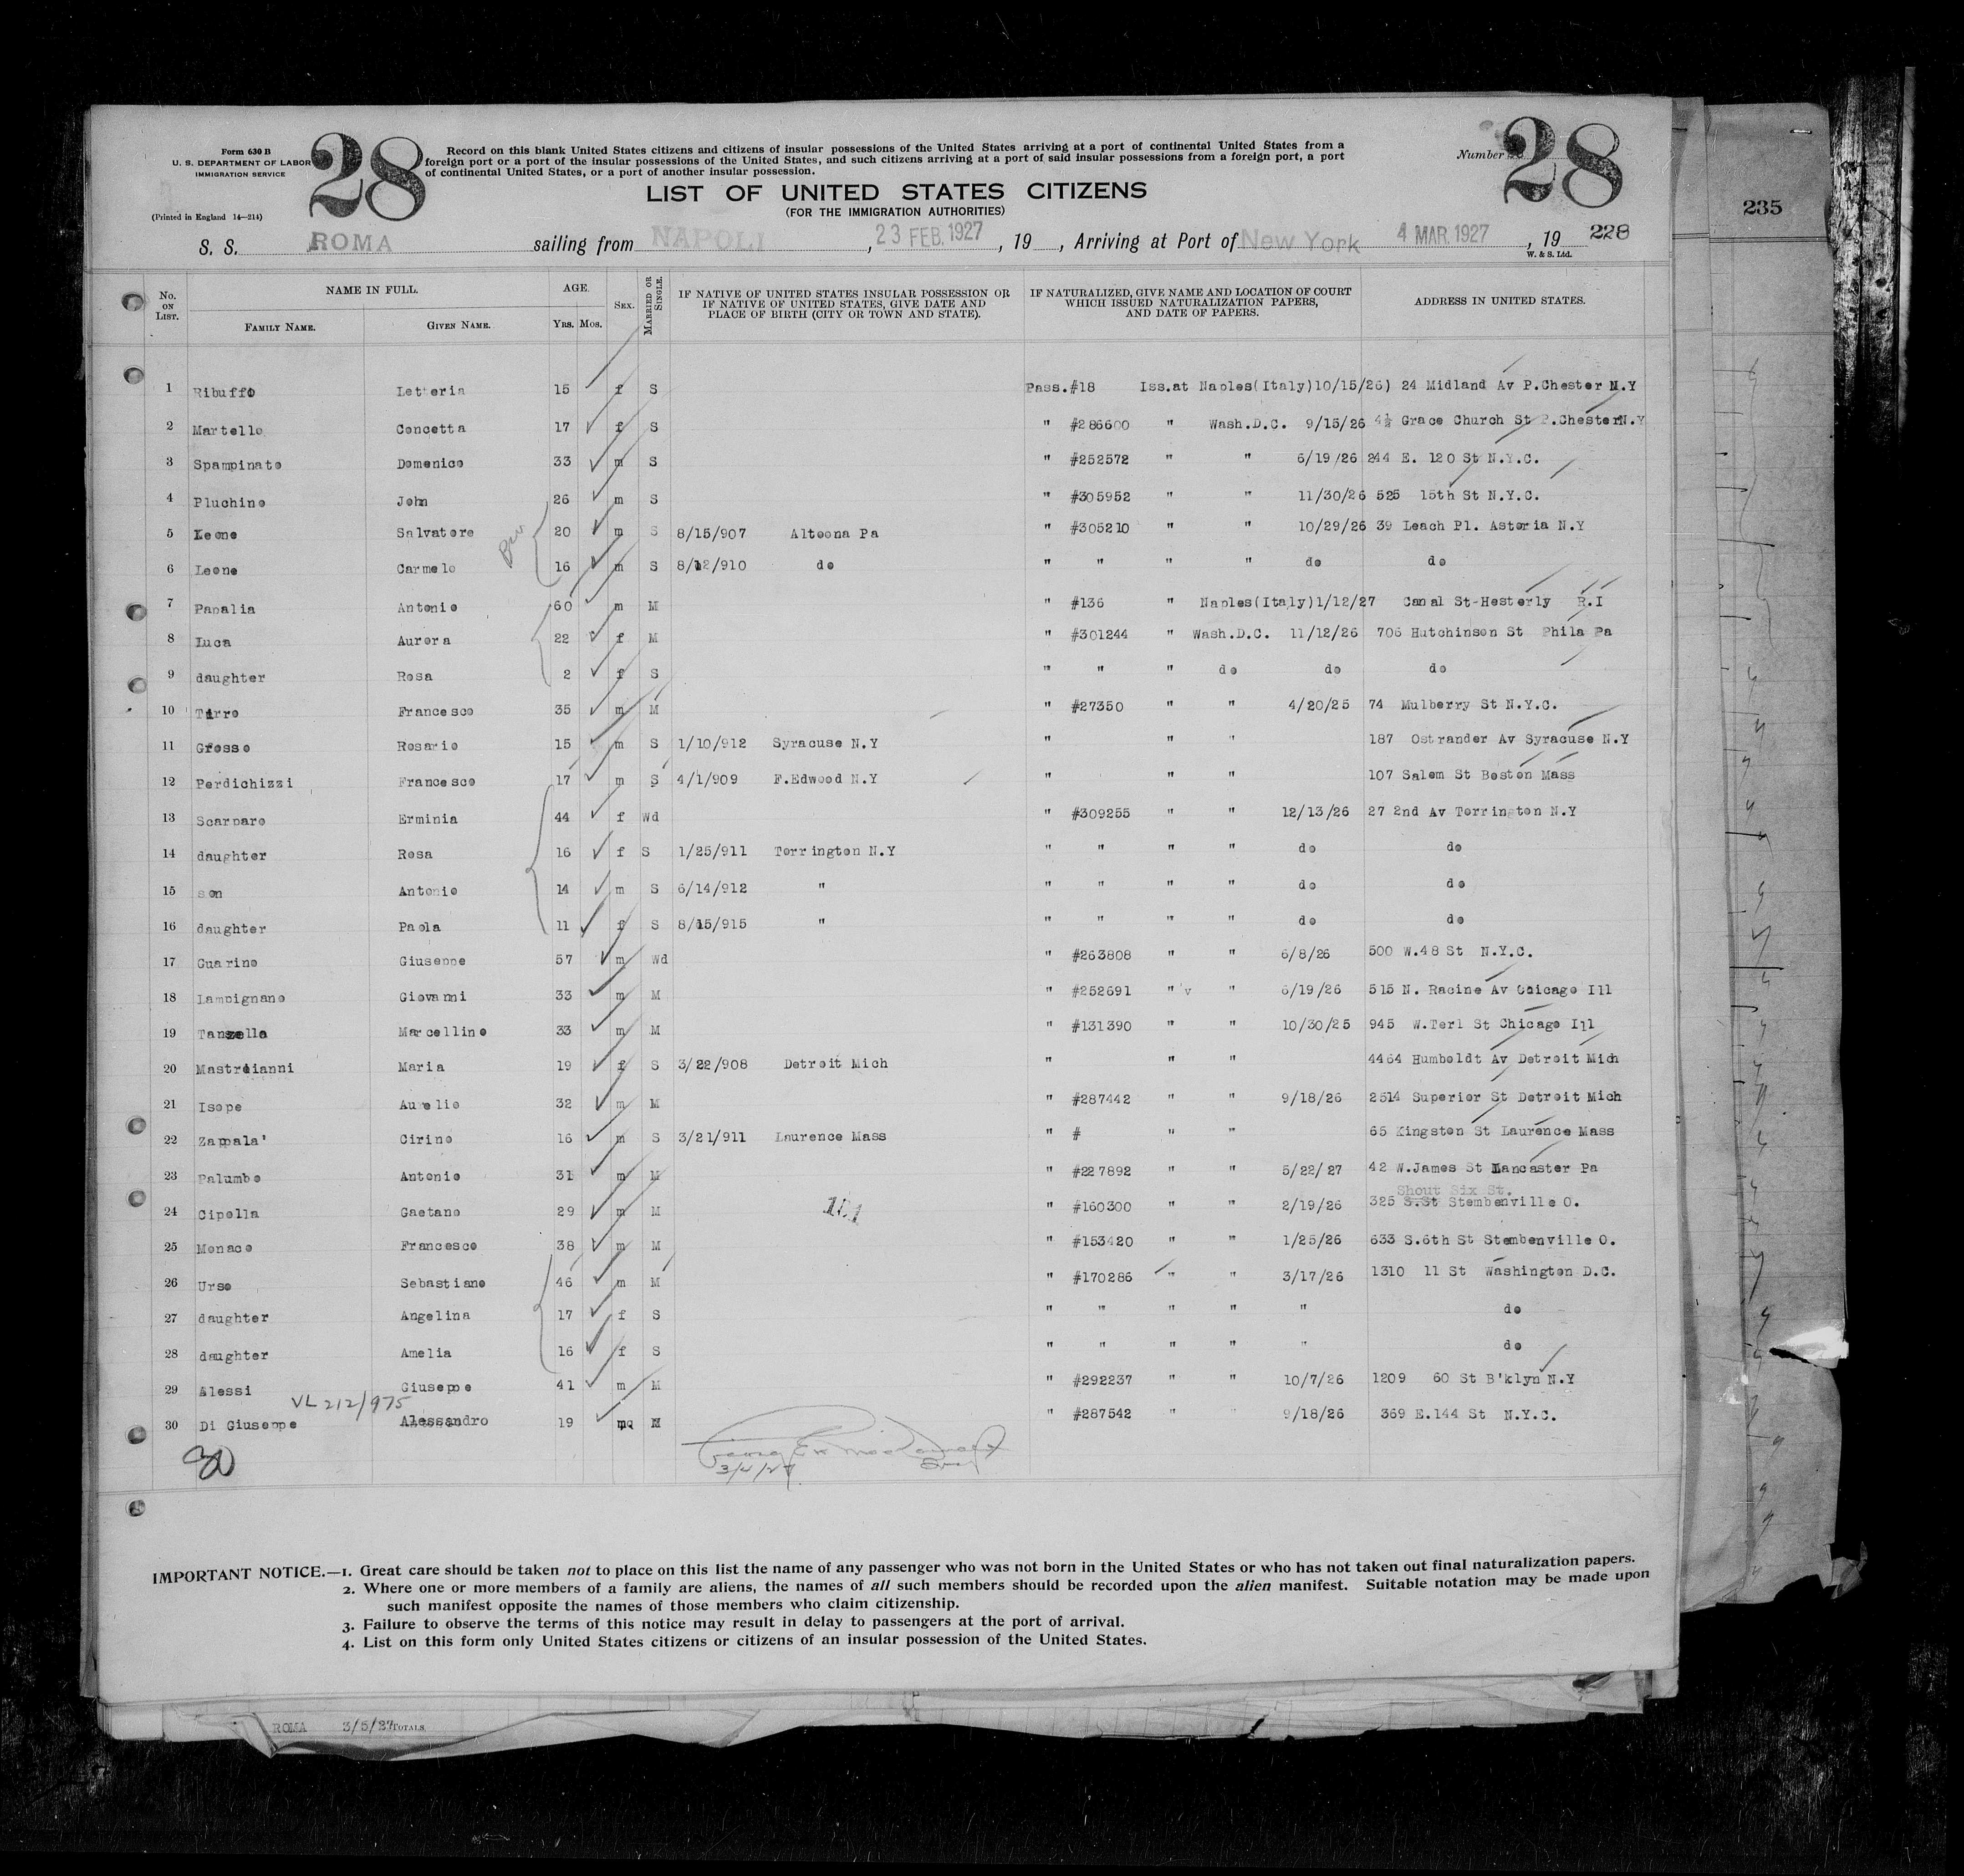 Form 630 B
U. S. DEPARTMENT OF LABOR
IMMIGRATION SERVICE
(Printed in England 14—214)
28
Record on this blank United States citizens and citizens of insular possessions of the United States arriving at a port of continental United States from a
foreign port or a port of the insular possessions of the United States, and such citizens arriving at a port of said insular possessions from a foreign port, a port
of continental United States, or a port of another insular possession.
Number
28
LIST OF UNITED STATES CITIZENS
(FOR THE IMMIGRATION AUTHORITIES)
S. S. ROMA sailing from NAPOLI, 23 FEB. 1927, 19 , Arriving at Port of New York 4 MAR. 1927, 19 228
W. & S. Ltd.
235
No. ON LIST. NAME IN FULL. FAMILY NAME. GIVEN NAME. AGE. YRS. MOS. SEX. MARRIED OR SINGLE. IF NATIVE OF UNITED STATES INSULAR POSSESSION OR IF NATIVE OF UNITED STATES, GIVE DATE AND PLACE OF BIRTH (CITY OR TOWN AND STATE). IF NATURALIZED, GIVE NAME AND LOCATION OF COURT WHICH ISSUED NATURALIZATION PAPERS, AND DATE OF PAPERS. ADDRESS IN UNITED STATES.
1 Ribuffo Letteria 15 f S Pass.#18 Iss.at Naples(Italy)10/15/26) 24 Midland Av P.Chester N.Y
2 Martello Concetta 17 f S " #286600 " Wash.D.C. 9/15/26 4½ Grace Church St P.Chester N.Y
3 Spampinato Domenico 33 m S " #252572 " " 6/19/26 244 E. 120 St N.Y.C.
4 Pluchino John 26 m S " #305952 " " 11/30/26 525 15th St N.Y.C.
5 Leone Salvatore 20 m S 8/15/907 Altoona Pa " #305210 " " 10/29/26 39 Leach Pl. Astoria N.Y
6 Leone Carmelo 16 m S 8/12/910 do " " " " do do
7 Papalia Antonio 60 m M " #136 " Naples(Italy)1/12/27 Canal St-Hesterly R.I
8 Luca Aurora 22 f M " #301244 " Wash.D.C. 11/12/26 706 Hutchinson St Phila Pa
9 daughter Rosa 2 f S " " " do do do
10 Tirro Francesco 35 m M " #27350 " " 4/20/25 74 Mulberry St N.Y.C.
11 Grosso Rosario 15 m S 1/10/912 Syracuse N.Y " " " 187 Ostrander Av Syracuse N.Y
12 Perdichizzi Francesco 17 m S 4/1/909 F.Edwood N.Y " " " 107 Salem St Boston Mass
13 Scarparo Erminia 44 f Wd " #309255 " " 12/13/26 27 2nd Av Torrington N.Y
14 daughter Rosa 16 f S 1/25/911 Torrington N.Y " " " " do do
15 son Antonio 14 m S 6/14/912 " " " " " do do
16 daughter Paola 11 f S 8/15/915 " " " " " do do
17 Guarino Giuseppe 57 m Wd " #263808 " " 6/8/26 500 W.48 St N.Y.C.
18 Lampignano Giovanni 33 m M " #252691 " v " 6/19/26 515 N. Racine Av Chicago Ill
19 Tanzella Marcellino 33 m M " #131390 " " 10/30/25 945 W.Terl St Chicago Ill
20 Mastroianni Maria 19 f S 3/22/908 Detroit Mich " " " 4464 Humboldt Av Detroit Mich
21 Isope Aurelio 32 m M " #287442 " " 9/18/26 2514 Superior St Detroit Mich
22 Zappala' Cirino 16 m S 3/21/911 Laurence Mass " # " " 65 Kingston St Laurence Mass
23 Palumbo Antonio 31 m M " #227892 " " 5/22/27 42 W.James St Lancaster Pa
Shout Six St.
24 Cipolla Gaetano 29 m M " #160300 " " 2/19/26 325 S.St Stembenville O.
25 Monaco Francesco 38 m M " #153420 " " 1/25/26 633 S.6th St Stembenville O.
26 Urso Sebastiano 46 m M " #170286 " " 3/17/26 1310 11 St Washington D.C.
27 daughter Angelina 17 f S " " " " " do
28 daughter Amelia 16 f S " " " " " do
29 Alessi Giuseppe 41 m M " #292237 " " 10/7/26 1209 60 St B'klyn N.Y
VL 212/975
30 Di Giuseppe Alessandro 19 m M " #287542 " " 9/18/26 369 E.144 St N.Y.C.
30
3/4/27
IMPORTANT NOTICE.—1. Great care should be taken not to place on this list the name of any passenger who was not born in the United States or who has not taken out final naturalization papers.
2. Where one or more members of a family are aliens, the names of all such members should be recorded upon the alien manifest. Suitable notation may be made upon
such manifest opposite the names of those members who claim citizenship.
3. Failure to observe the terms of this notice may result in delay to passengers at the port of arrival.
4. List on this form only United States citizens or citizens of an insular possession of the United States.
ROMA 3/5/27 TOTALS